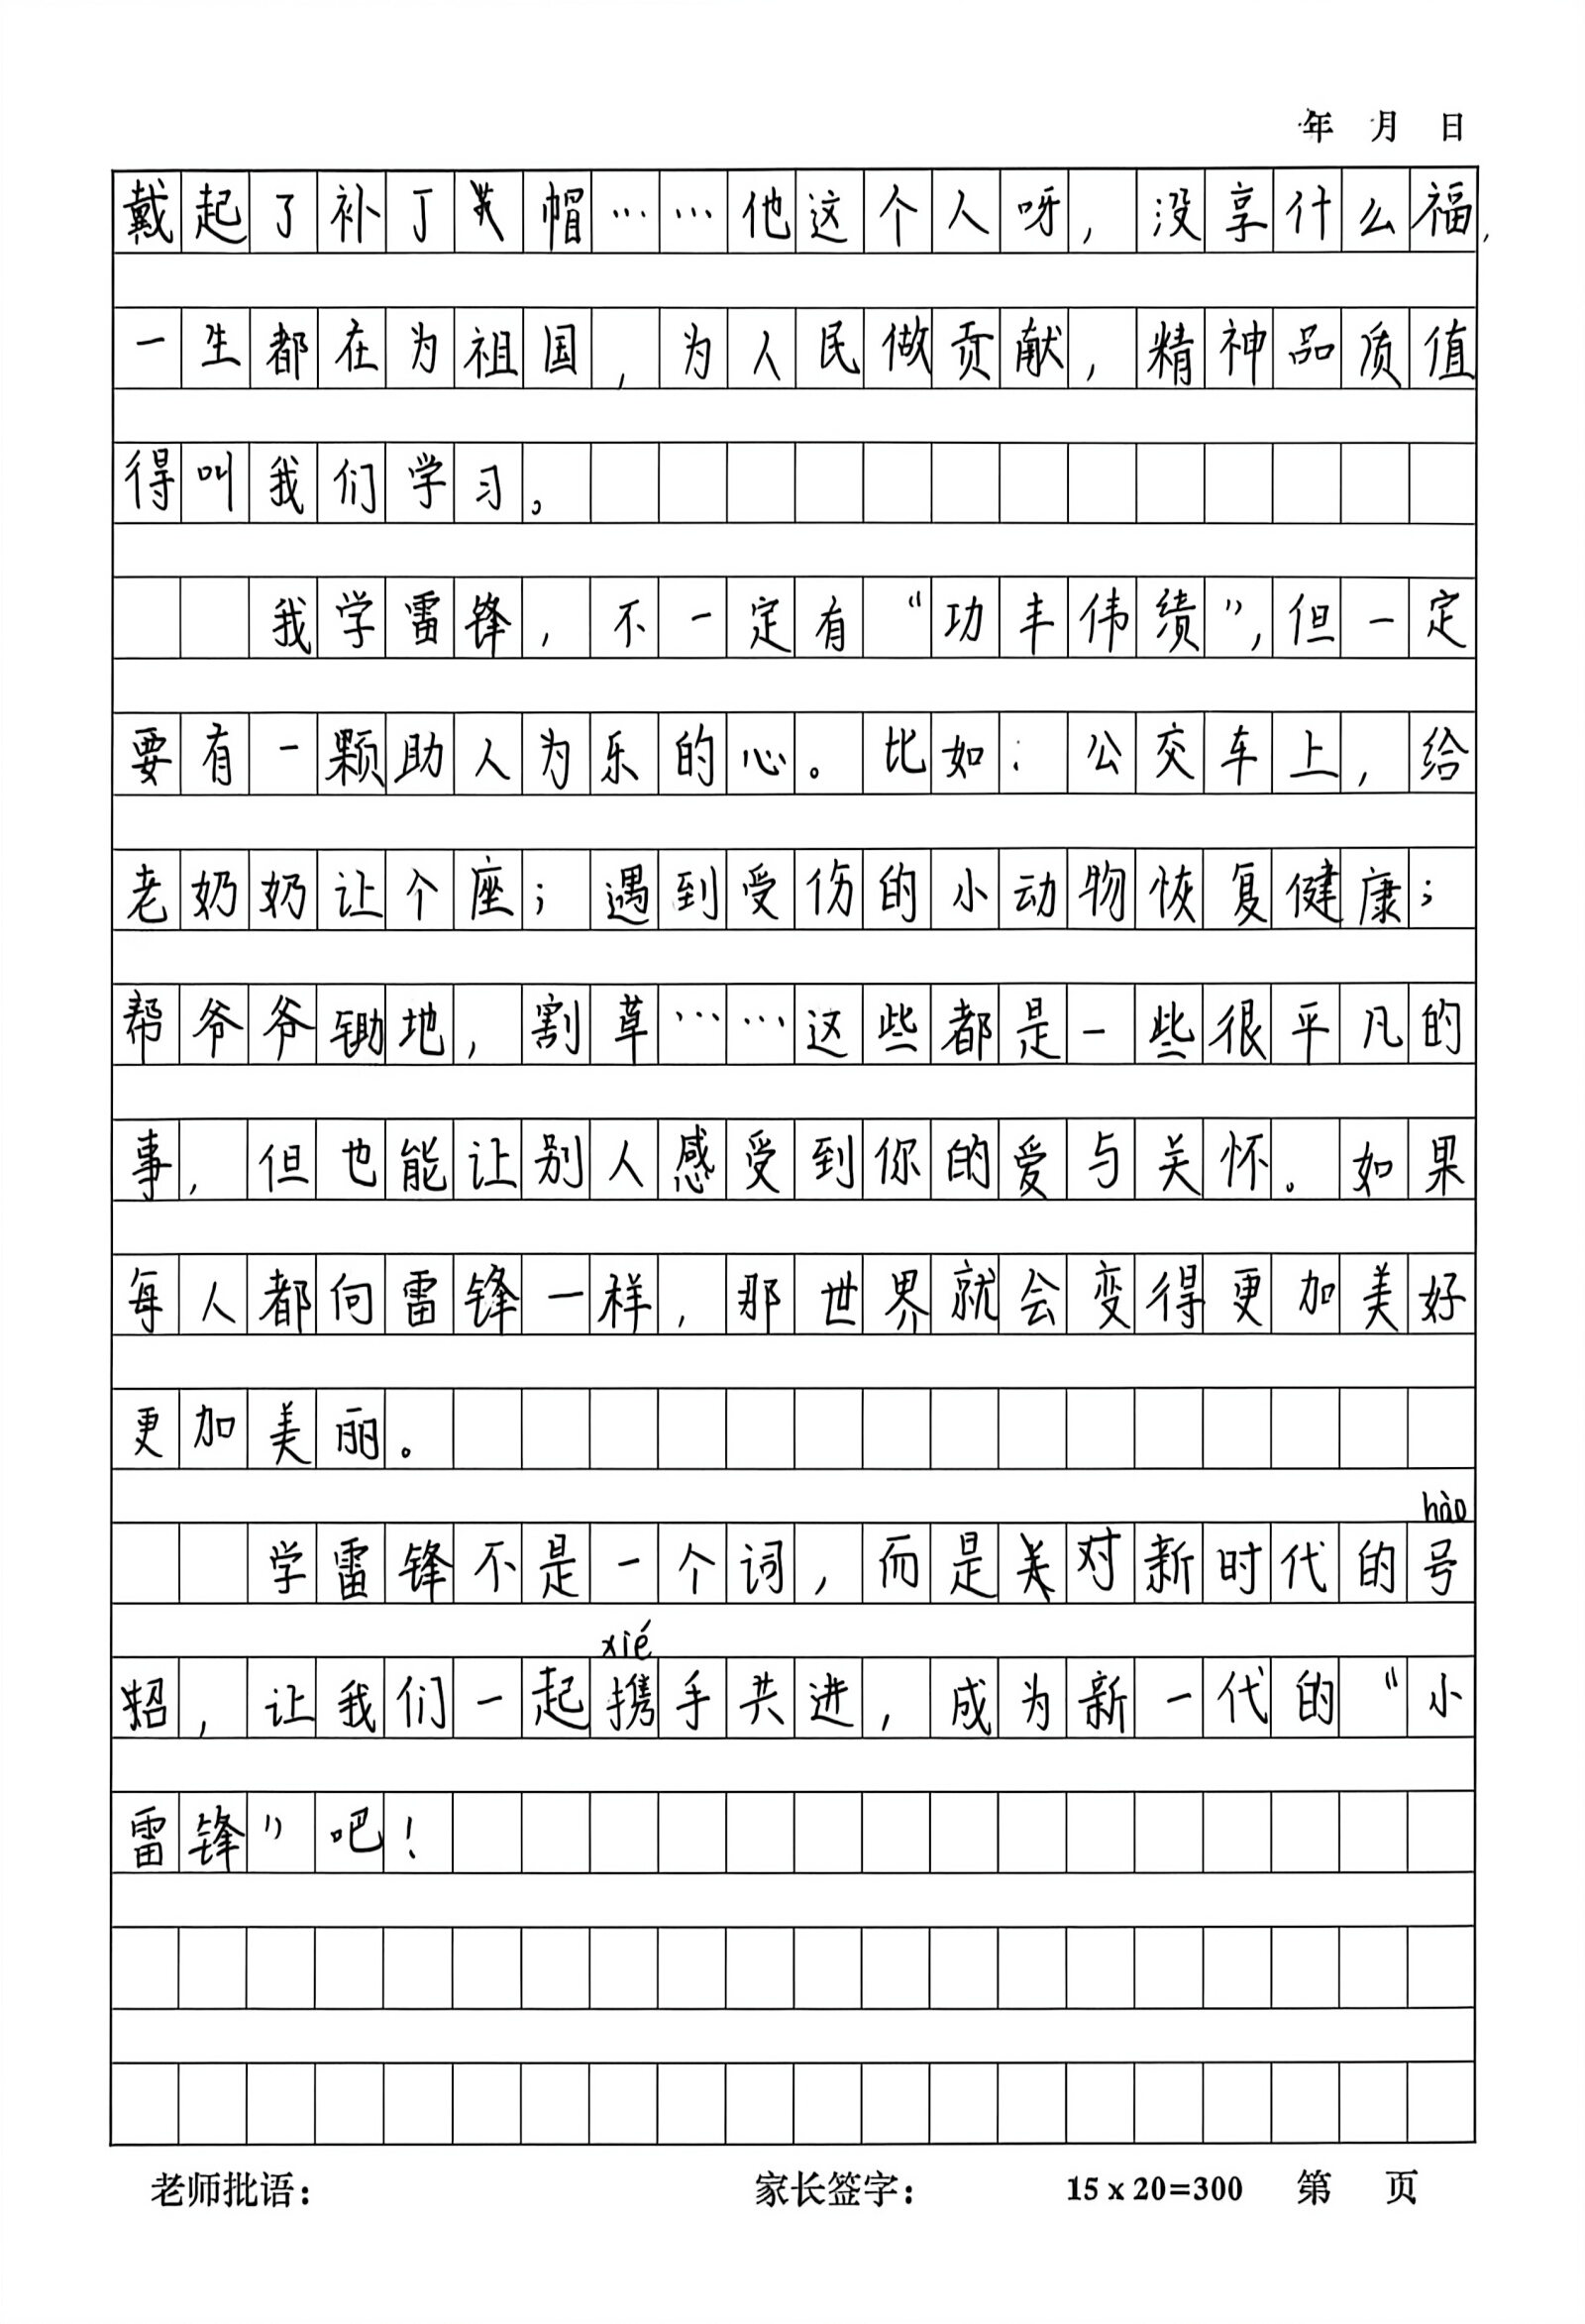 年 月 日
戴起了补丁帽……他这个人呀，没享什么福，
一生都在为祖国，为人民做贡献，精神品质值
得叫我们学习。
我学雷锋，不一定有“功丰伟绩”，但一定
要有一颗助人为乐的心。比如：公交车上，给
老奶奶让个座；遇到受伤的小动物恢复健康；
帮爷爷锄地，割草……这些都是一些很平凡的
事，但也能让别人感受到你的爱与关怀。如果
每人都向雷锋一样，那世界就会变得更加美好
更加美丽。
hào
学雷锋不是一个词，而是对新时代的号
xié
招，让我们一起携手共进，成为新一代的“小
雷锋”吧！
老师批语： 家长签字： 15 x 20=300 第 页